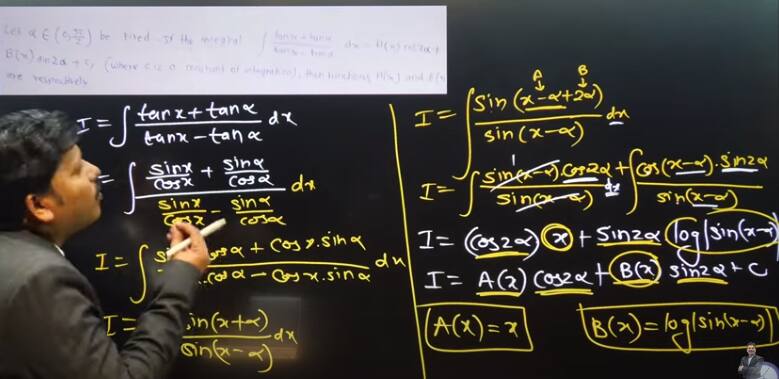 Let α ∈ (0, π/2) be fixed. If the integral ∫ (tan x + tan α)/(tan x - tan α) dx = A(x) cos 2α +
B(x) sin 2α + C, (where C is a constant of integration), then functions A(x) and B(x)
are respectively
I = ∫ (tan x + tan α)/(tan x - tan α) dx
= ∫ (sin x/cos x + sin α/cos α)/(sin x/cos x - sin α/cos α) dx
I = ∫ cos α + cos x . sin α / . cos α - cos x . sin α dx
I = sin(x+α)/sin(x-α) dx
A B
I = ∫ sin(x-α+2α)/sin(x-α) dx
I = ∫ sin(x-α) cos 2α/sin(x-α) dx + ∫ cos(x-α) . sin 2α/sin(x-α)
I = (cos 2α) x + sin 2α log|sin(x-α)
I = A(x) cos 2α + B(x) sin 2α + C
A(x) = x
B(x) = log|sin(x-α)|